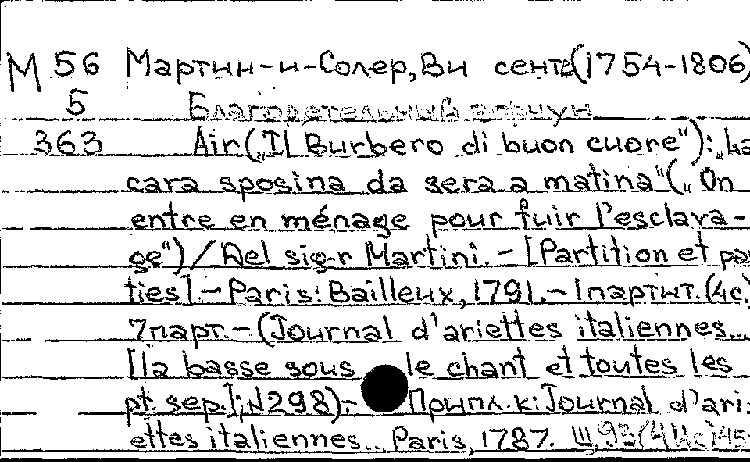 М 56 Мартин-и-Солер, Ви сенте (1754-1806)
5 Благодетельный ворчун
363 Air („Il Burbero di buon cuore“): „La
cara sposina da sera a matina“ („On
entre en ménage pour fuir l'esclava-
ge“) / Del sig-r Martini. – [Partition et par
ties]. – Paris: Bailleux, 1791. – 1 партит. (4с)
7 парт. – (Journal d'ariettes italiennes...
[la basse sous le chant et toutes les
pt. sep.]; N298). – Припл. к: Journal d'ari-
ettes italiennes... Paris, 1787.